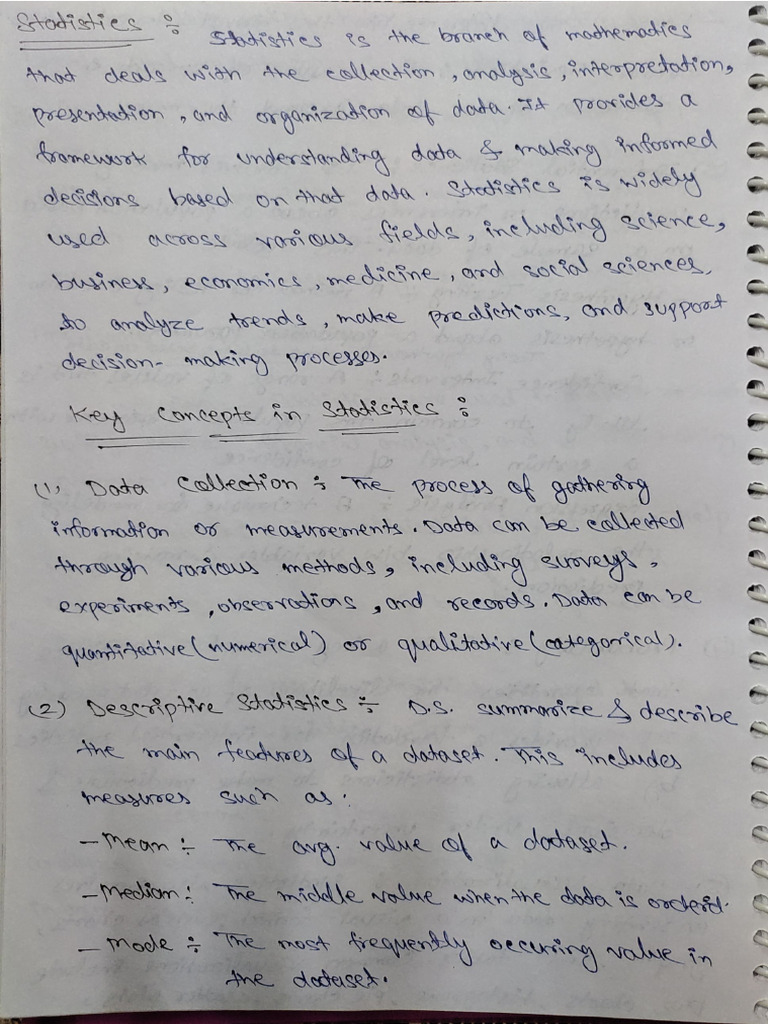 Statistics ÷ Statistics is the branch of mathematics
that deals with the collection, analysis, interpretation,
presentation, and organization of data. It provides a
framework for understanding data & making informed
decisions based on that data. Statistics is widely
used across various fields, including science,
business, economics, medicine, and social sciences,
to analyze trends, make predictions, and support
decision-making processes.
Key Concepts in Statistics ÷
(1) Data Collection ÷ The process of gathering
information or measurements. Data can be collected
through various methods, including surveys,
experiments, observations, and records. Data can be
quantitative (numerical) or qualitative (categorical).
(2) Descriptive Statistics ÷ D.S. summarize & describe
the main features of a dataset. This includes
measures such as:
- Mean ÷ The avg. value of a dataset.
- Median: The middle value when the data is ordered.
- Mode ÷ The most frequently occuring value in
the dataset.